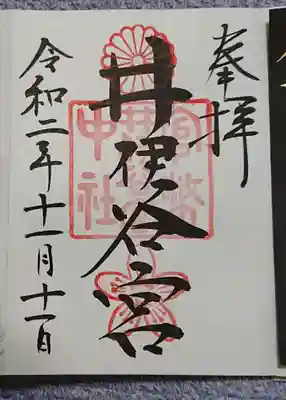 奉拝
井伊谷宮
官幣中社
令和二年十一月十一日